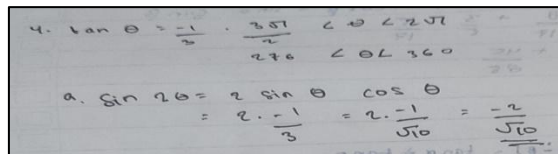 4. tan θ = -1/3 . 3π/2 < θ < 2π
276 < θ < 360
a. sin 2θ = 2 sin θ cos θ
= 2 . -1/3 = 2 . -1/√10 = -2/√10